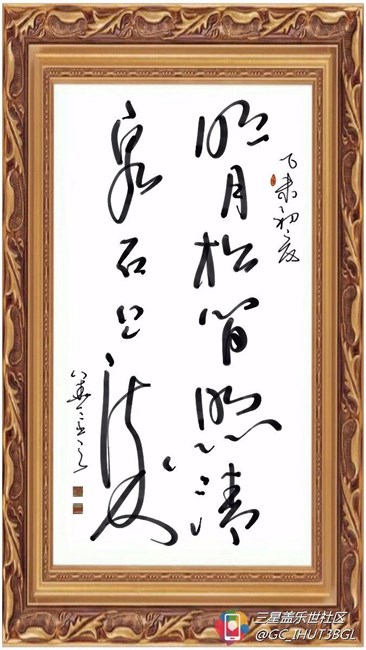 未初夏
明月松间照清
泉石上流
三星盖乐世社区
@GC_IHUT3BGL